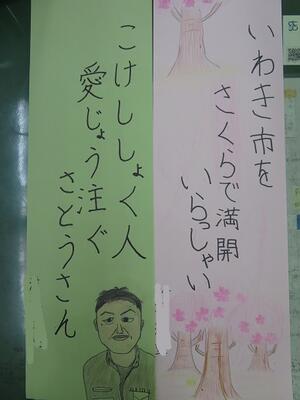 いわき市を
さくらで満開
いらっしゃい
こけししょく人
愛じょう注ぐ
さとうさん